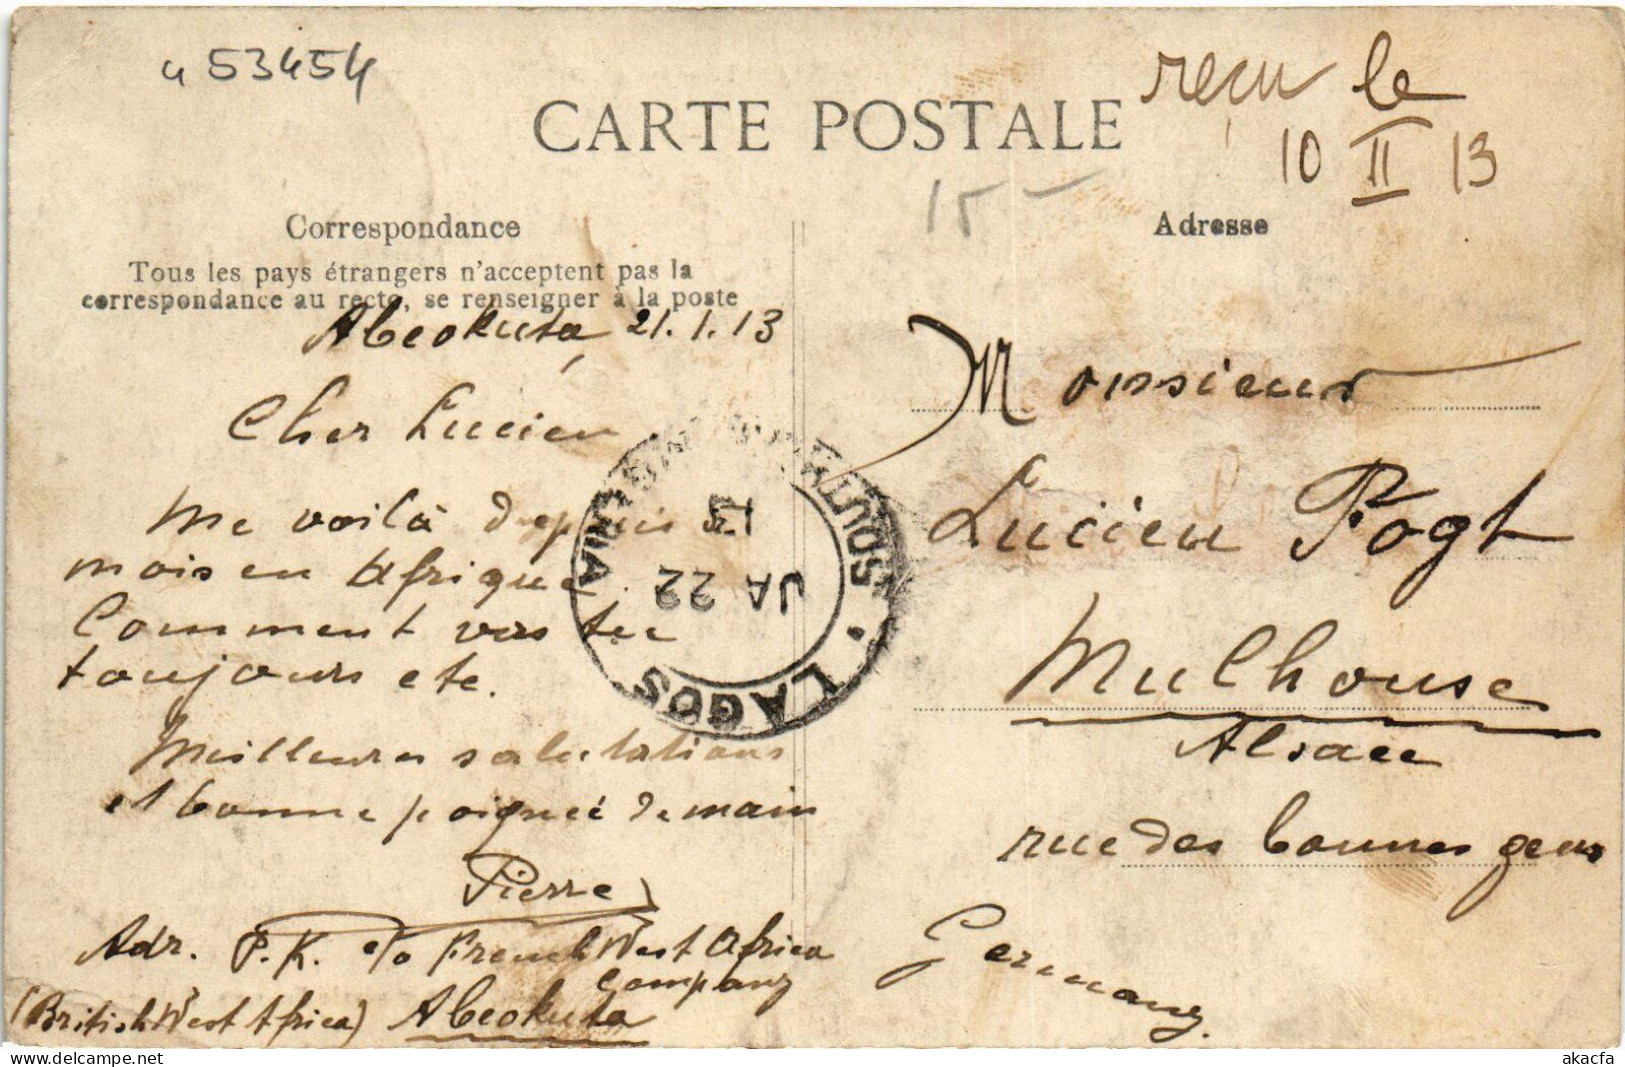 a 53454
reçu le
10 II 13
CARTE POSTALE
15 -
Correspondance
Adresse
Tous les pays étrangers n'acceptent pas la
correspondance au recto, se renseigner à la poste
Abeokuta, 21.1.13
Cher Lucien
Me voilà depuis un
mois en Afrique
Comment vas tu
toujours etc.
Meilleures salutations
et bonne poignée de main
Pierre
Adr. P.K. c/o French West Africa
Company
(British West Africa) Abeokuta
SOUTHERN NIGERIA
13
JA 22
LAGOS
Monsieur
Lucien Vogt
Mulhouse
Alsace
rue des bonnes gens
Germany.
akacfa